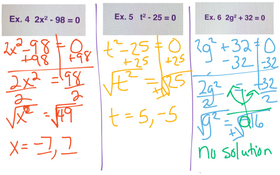 Ex. 4 2x² - 98 = 0
2x² - 98 = 0
+98 +98
2x² = 98
2 2
√x² = √49
x = -7, 7
Ex. 5 t² - 25 = 0
t² - 25 = 0
+25 +25
√t² = ±√25
t = 5, -5
Ex. 6 2g² + 32 = 0
2g² + 32 = 0
-32 -32
2g² = -32
2 2
√g² = ±√-16
no solution